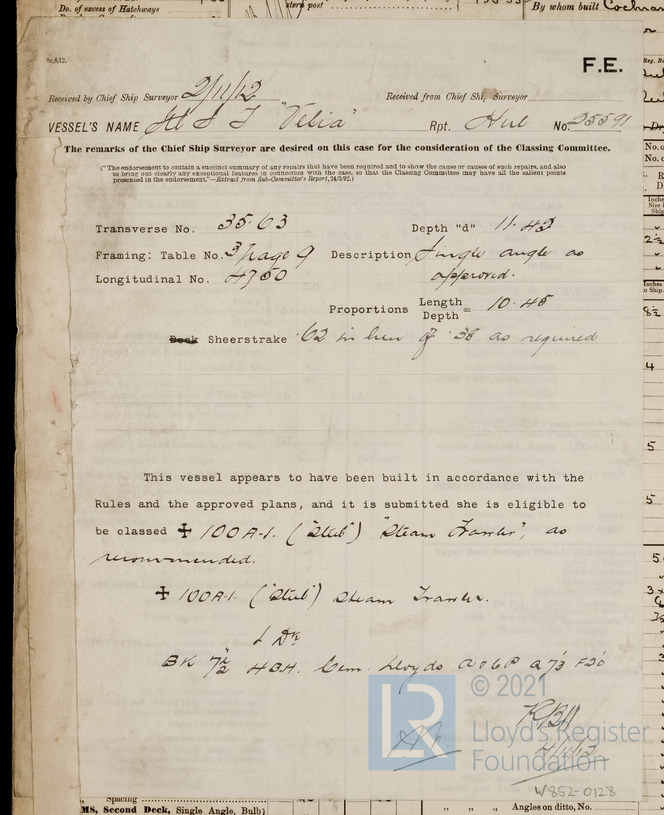 Do. of excess of Hatchways
stern post
By whom built Cochran
F.E.
Received by Chief Ship Surveyor 2/11/12
Received from Chief Surveyor
VESSEL'S NAME "Velia" Rpt. Hul No. 25591
The remarks of the Chief Ship Surveyor are desired on this case for the consideration of the Classing Committee.
("The endorsement to contain a succinct summary of any repairs that have been required and to show the cause or causes of such repairs, and also
to bring out clearly any exceptional features in connection with the case, so that the Classing Committee may have all the salient points
presented in the endorsement."—Extract from Sub-Committee's Report, 24/5/92.)
Transverse No. 35.63 Depth "d" 11.42
Framing: Table No. 3 page 9 Description Single angle as
Longitudinal No. 4750 approved.
Proportions Length
Depth = 10.45
Deck Sheerstrake .62 in lieu of .38 as required
This vessel appears to have been built in accordance with the
Rules and the approved plans, and it is submitted she is eligible to
be classed ✠ 100A-1. ("Steel") "Steam Trawler", as
recommended.
✠ 100A-1. ("Steel") Steam Trawler.
1 Dk
BK 7½ 4BH. Cem. Lloyds A&CP
© 2021
LR
Lloyd's Register
Foundation
W852-0128
Spacing
MS, Second Deck, Single Angle, Bulb) " " " Angles on ditto, No.